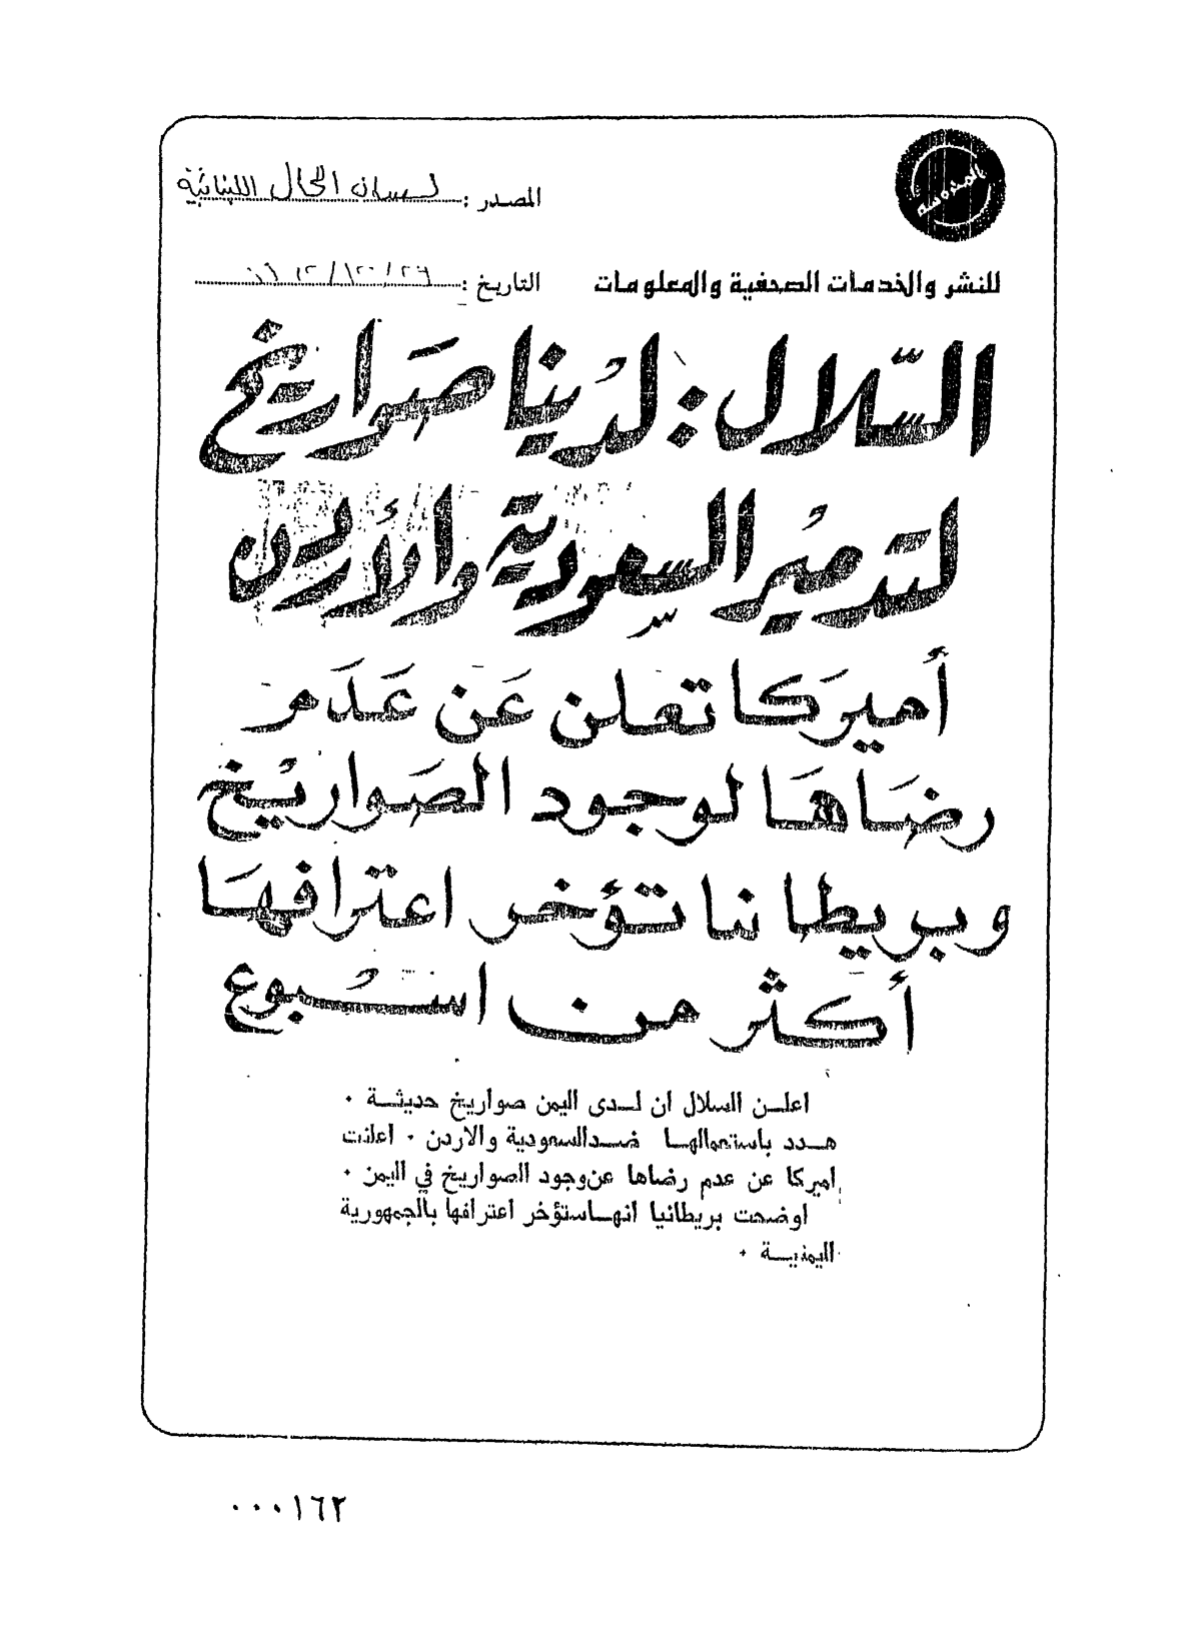 المصدر : لسان الحال اللبنانية
للنشر والخدمات الصحفية والمعلومات
التاريخ :
السّلال : لدينا صواريخ
لتدمير السعودية والأردن
أميركا تعلن عن عدم
رضاها لوجود الصواريخ
وبريطانيا تؤخر اعترافها
أكثر من اسبوع
اعلـن السلال ان لـدى اليمن صواريخ حديثـة ٠
هـدد باستعمالهـا ضـدالسعودية والاردن ٠ اعلنت
اميركا عن عدم رضاها عن وجود الصواريخ في اليمن ٠
اوضحت بريطانيا انهـاستؤخر اعترافها بالجمهورية
اليمنيـة ٠
٠٠٠١٦٢